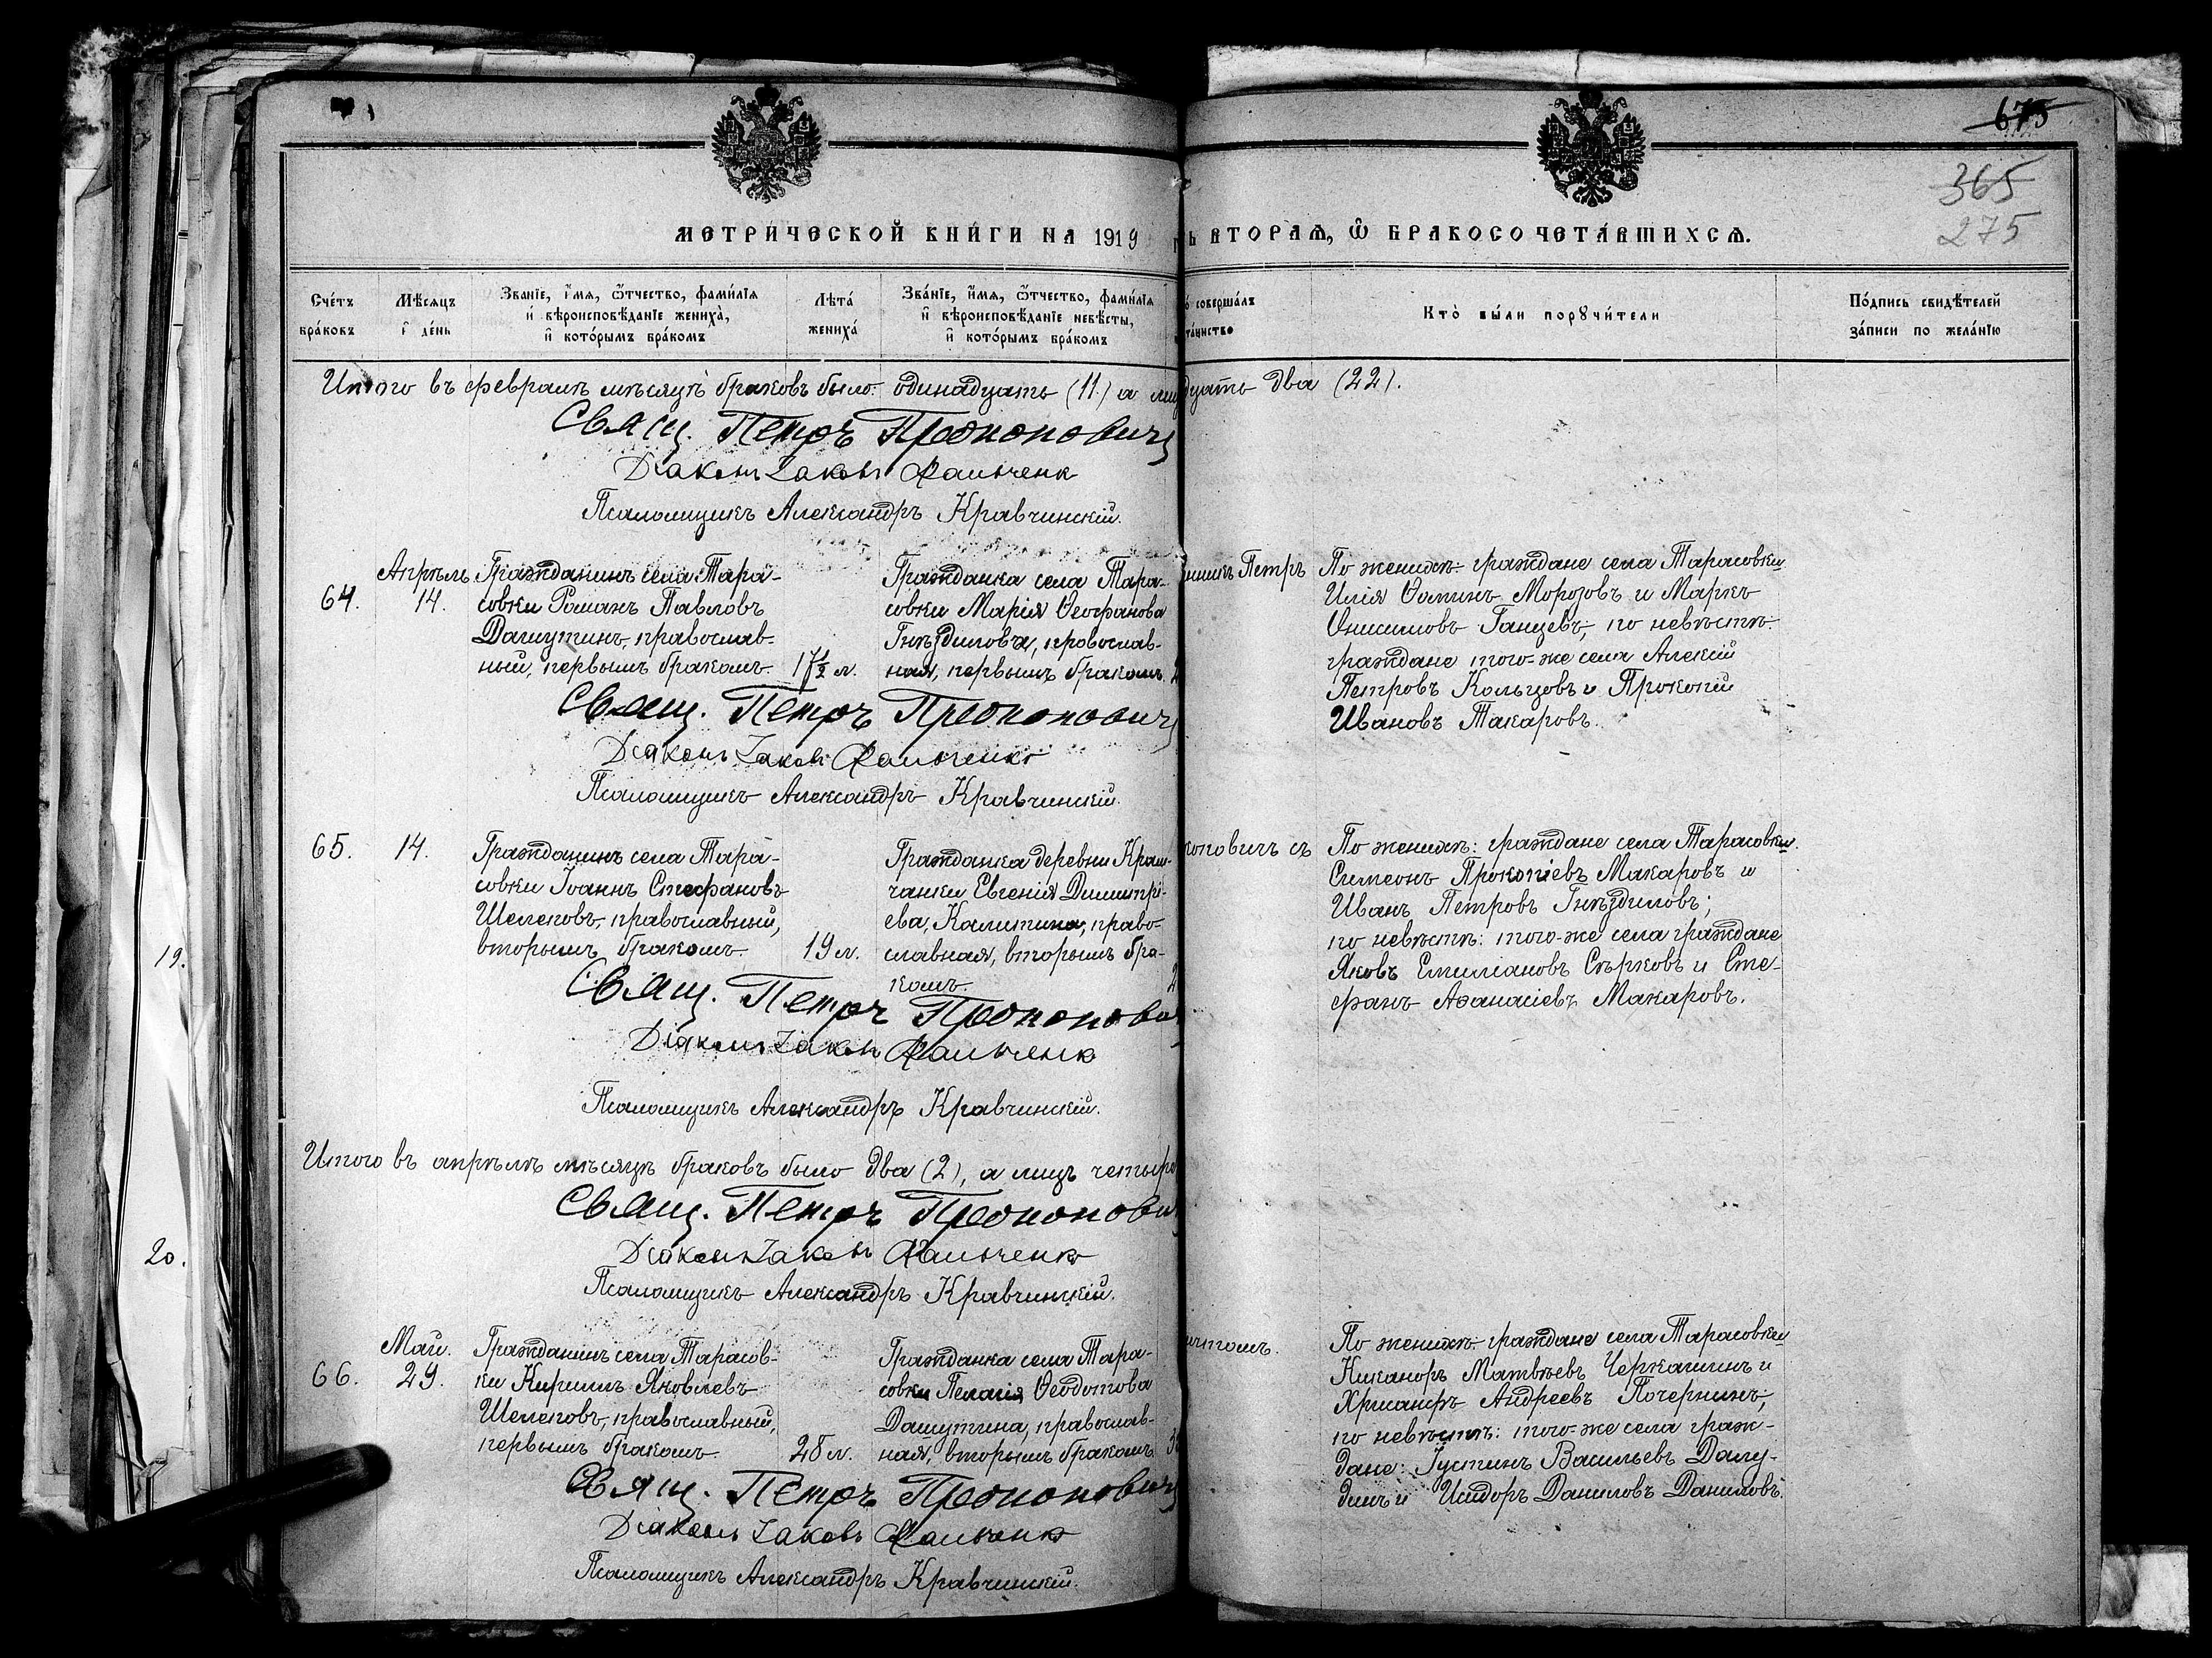 675
365
275
МЕТРИЧЕСКОЙ КНИГИ НА 1919
Ь ВТОРАѦ, Ѿ БРАКОСОЧЕТАВШИХСѦ.
Счетъ браковъ
Мѣсяцъ и день
Званіе, имя, ѿтчество, фамилія и вѣроисповѣданіе жениха, и которымъ бракомъ
Лѣта жениха
Званіе, имя, ѿтчество, фамилія и вѣроисповѣданіе невѣсты, и которымъ бракомъ
совершалъ таинство
Кто были поручители
Подпись свидѣтелей записи по желанію
Итого въ февралѣ мѣсяцѣ браковъ было одинадцать (11) а
дцать два (22).
Свящ. Петръ
Діаконъ
Псаломщикъ Александръ Кравчинскій.
64.
Апрѣль
14.
Гражданинъ села Тара-
совки Романъ Павловъ
Дашутинъ, православ-
ный, первымъ бракомъ
17½ л.
Гражданка села Тара-
совки Марія Ѳеофанова
Гнѣздилова, православ-
ная, первымъ бракомъ
Петръ
По женихѣ: граждане села Тарасовки
Илія Ѳоминъ Морозовъ и Маркъ
Онисимовъ Ганцевъ, по невѣстѣ:
граждане того-же села Алексій
Петровъ Кольцовъ и Прокопій
Ивановъ Макаровъ.
Свящ. Петръ
Діаконъ
Псаломщикъ Александръ Кравчинскій.
65.
14.
Гражданинъ села Тара-
совки Іоаннъ Стефановъ
Шелеповъ, православный,
вторымъ бракомъ
19 л.
Гражданка деревни
чанки Евгенія Димитрі-
ева Калитина, право-
славная, вторымъ бра-
комъ
коповичъ съ
По женихѣ: граждане села Тарасовки.
Симеонъ Прокопіевъ Макаровъ и
Иванъ Петровъ Гнѣздиловъ;
по невѣстѣ: того-же села граждане
Яковъ Емиліановъ Сѣрковъ и Сте-
фанъ Аѳанасіевъ Макаровъ.
Свящ. Петръ
Діаконъ
Псаломщикъ Александръ Кравчинскій.
Итого въ апрѣлѣ мѣсяцѣ браковъ было два (2), а лицъ четыре
Свящ. Петръ
Діаконъ
Псаломщикъ Александръ Кравчинскій.
66.
Май.
29.
Гражданинъ села Тарасов-
ки Кириллъ Яковлевъ
Шелеповъ, православный,
первымъ бракомъ
28 л.
Гражданка села Тара-
совки Пелагія Ѳеодотова
Дашутина, православ-
ная, вторымъ бракомъ
По женихѣ: граждане села Тарасовки
Никаноръ Матвѣевъ Черкашинъ и
Хрисанфъ Андреевъ
по невѣстѣ: того-же села граж-
дане: Іустинъ Васильевъ Дашу-
и Исидоръ Даниловъ Даниловъ.
Свящ. Петръ
Діаконъ
Псаломщикъ Александръ Кравчинскій.
19.
20.